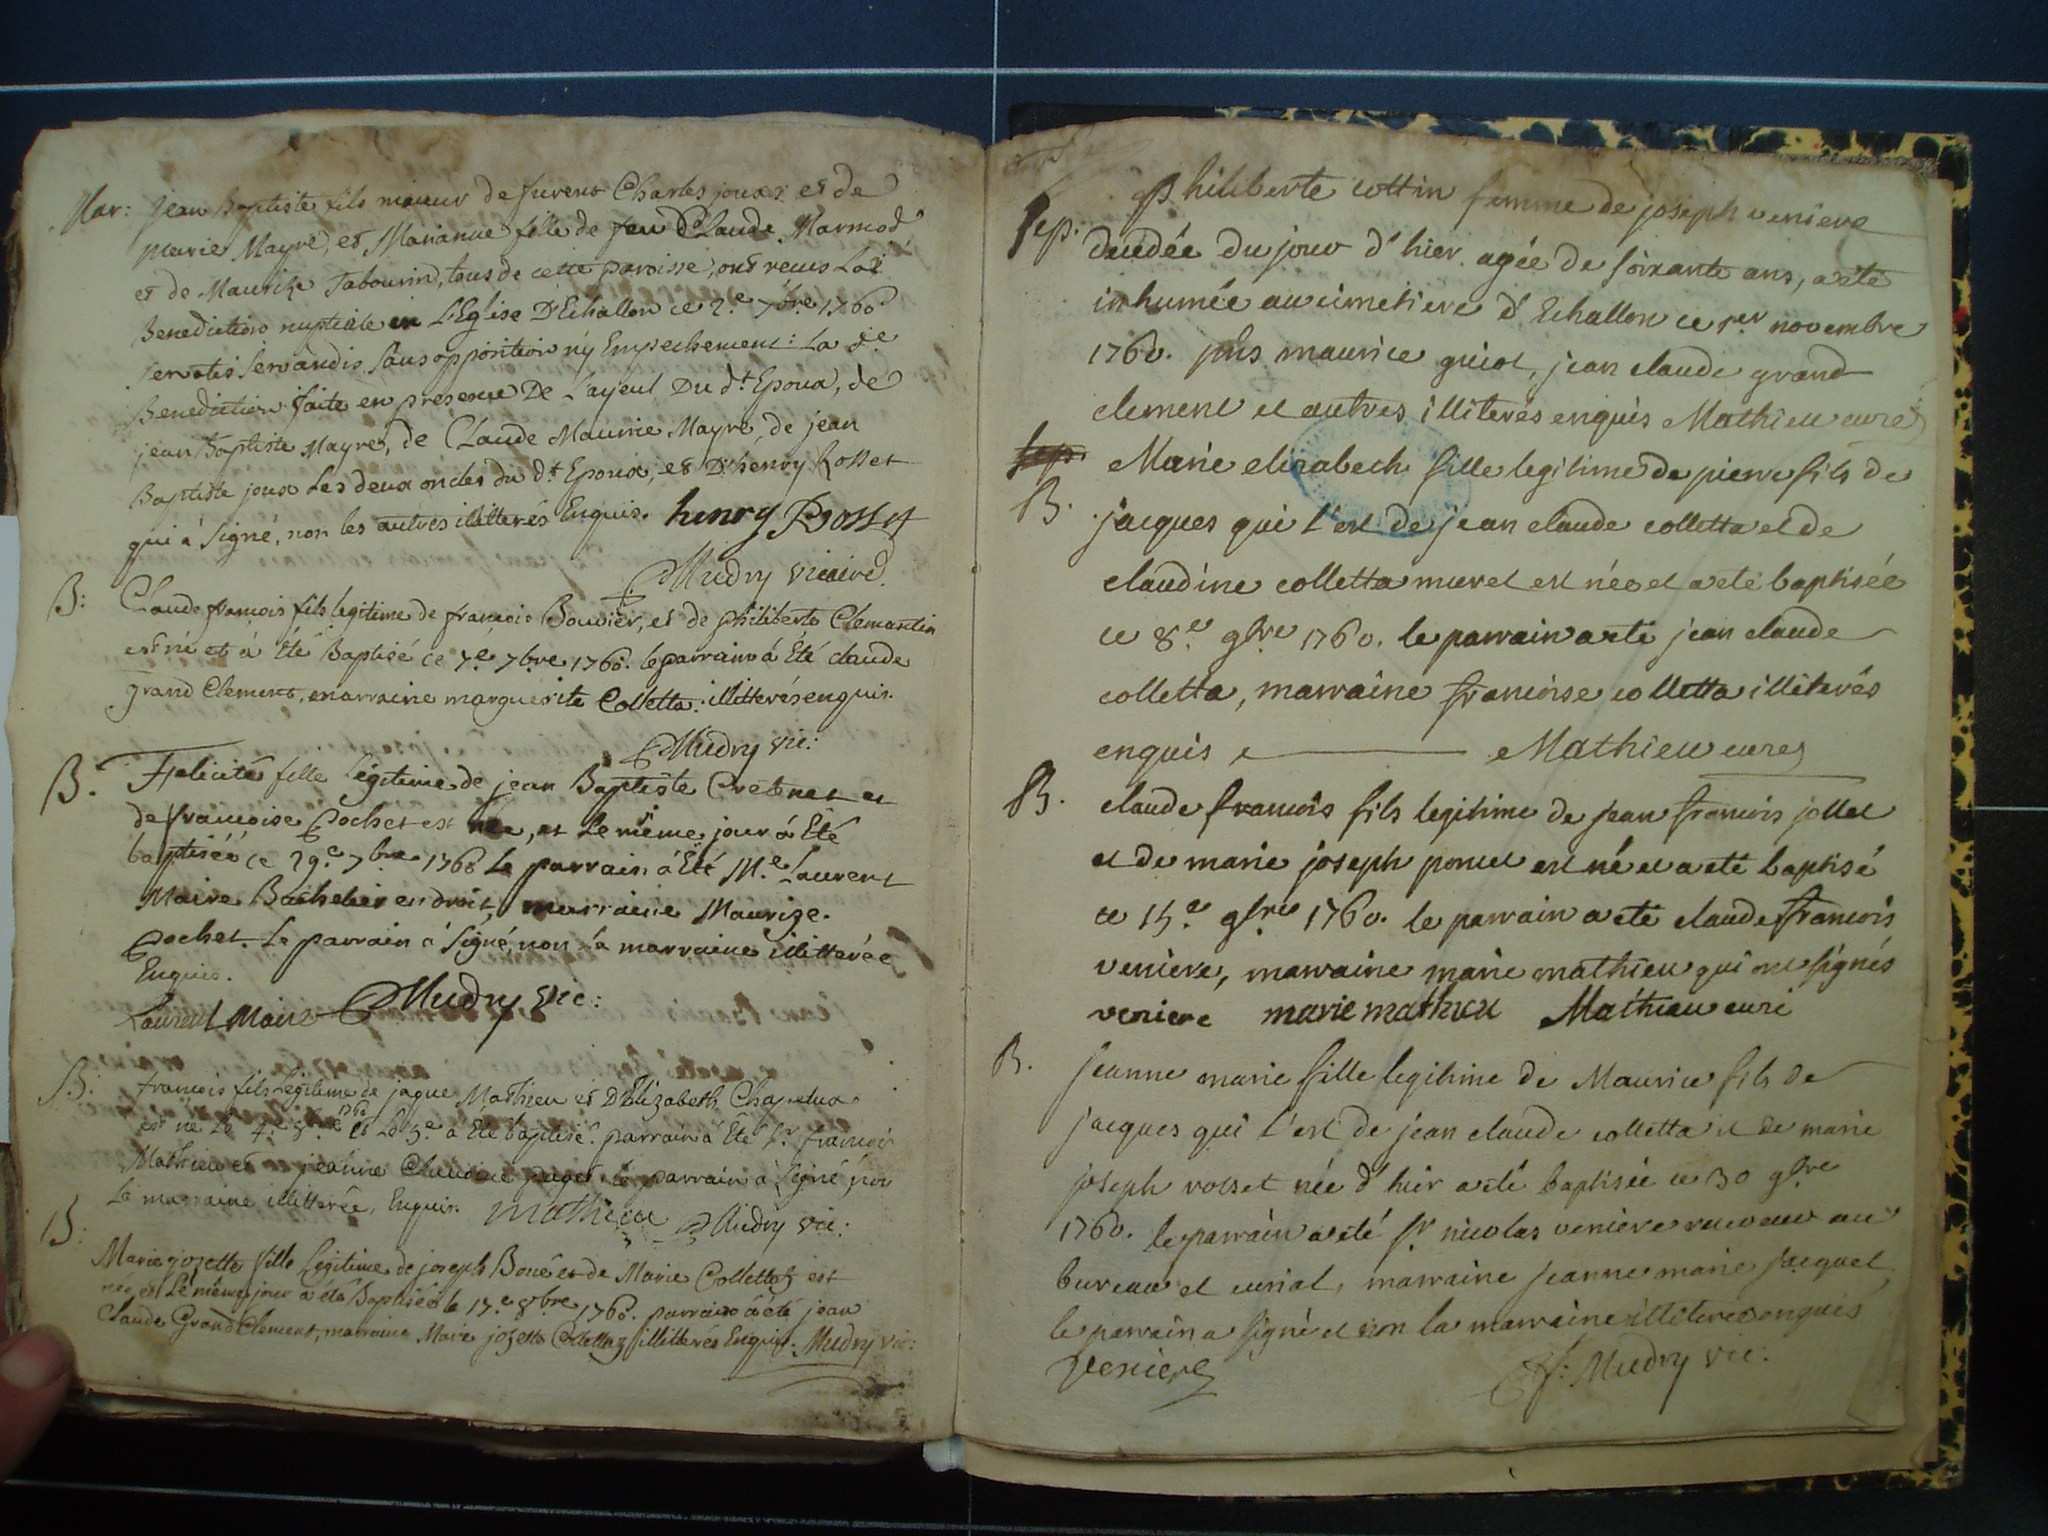 Mar: jean Baptiste fils majeur de furent Charles joux et de
marie Mayre, et Marianne fille de feu Claude Marmod
et de Maurize Tabourin, tous de cette paroisse, ont reçus La
Benediction nuptiale en L'Eglise D'Echallon ce 2.e 7bre 1760
servatis servandis sans opposition ny Empechement: La de
Benediction faite en presence De Layeul Du dt Epoux, de
jean Baptiste Mayre, de Claude Maurice Mayre, de jean
Baptiste joux Les deux oncles du dt Epoux, et D'henry Rosset
qui à signé, non les autres illitterés Enquis. henry Rosset
Mudry vicaire
B: Claude françois fils legitime de françois Bouvier, et de philiberte Clemantin
est né et à Eté Baptisé ce 7.e 7bre 1760. le parrain à Eté claude
grand Clement, marraine marguerite Colletta: illitterés enquis.
Mudry vic:
B. Felicité fille Légitime de jean Baptiste Cretenet et
de françoise Pochet est née, et Le même jour à Eté
baptiséé ce 29.e 7bre 1760 Le parrain à Eté M.e Laurent
Maire Bachelier en droit, marraine Maurize
Pochet. Le parrain à signé, non La marraine illitterée
Enquis.
Laurent Maire Mudry vic:
B: françois fils Légitime de jaque Mathieu et D'Elizabeth Chapelux
est né Le 4.e 1760 et Le 5.e à Eté baptisé. parrain à Eté Sr françois
Mathieu et jeanne Claudine puget. Le parrain à signé, non
La marraine illitterée, Enquis. mathieu Mudry vic:
B: Marie jozette fille Légitime de joseph Boné et de Marie Collettaz est
née, et Le même jour à été Baptisée le 17.e 8bre 1760. parrain à été jean
Claude Grand Clement, marraine Marie jozette Collettaz illitterés Enquis. Mudry vic:
Philiberte cottin femme de joseph veniere
Sep: decedée du jour d'hier agée de soixante ans, a eté
inhumée au cimetiere d'Echallon ce 1er novembre
1760. pnts maurice guiot, jean claude grand
clement et autres illiterés enquis Mathieu curé
Sep. Marie elizabeth fille legitime de pierre fils de
B. jacques qui l'est de jean claude colletta et de
claudine colletta muret est née et a eté baptisée
ce 8.e 9bre 1760. le parrain a eté jean claude
colletta, marraine francoise colletta illiterés
enquis Mathieu curé
B. claude francois fils legitime de jean francois jollet
et de marie joseph poncet est né et a eté baptisé
ce 15.e 9bre 1760. le parrain a eté claude francois
veniere, marraine marie mathieu qui ont signés
veniere marie mathieu Mathieu curé
B. Jeanne marie fille legitime de Maurice fils de
jacques qui l'est de jean claude colletta et de marie
joseph rosset née d'hier a eté baptisée ce 30 9bre
1760. le parrain a eté Sr nicolas veniere receveur au
bureau et curial, marraine jeanne marie jacquet
le parrain a signé et non la marraine illiteree enquis
Veniere Mudry vic.